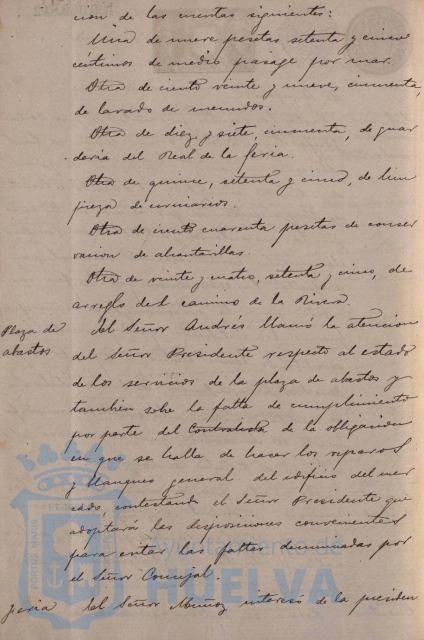 cion de las cuentas siguientes:
Una de nueve pesetas setenta y cinco
céntimos de medio pasage por mar.
Otra de ciento veinte y nueve, cincuenta,
de lavado de menudos.
Otra de diez y siete, cincuenta, de guar
deria del Real de la feria.
Otra de quince, setenta y cinco, de lim
pieza de urinarios.
Otra de ciento cuarenta pesetas de conser
vacion de alcantarillas.
Otra de veinte y cuatro, setenta y cinco, de
arreglo del camino de la Rivera.
Plaza de
abastos
El Señor Andrés llamó la atencion
del Señor Presidente respecto al estado
de los servicios de la plaza de abastos y
tambien sobre la falta de cumplimiento
por parte del Contratista de la obligacion
en que se halla de hacer los reparos
y blanqueo general del edificio del mer
cado, contestando el Señor Presidente que
adoptará las disposiciones convenientes
para evitar las faltas denunciadas por
el Señor Concejal.
feria
El Señor Muñoz interesó de la presiden
Ayuntamiento de
HUELVA